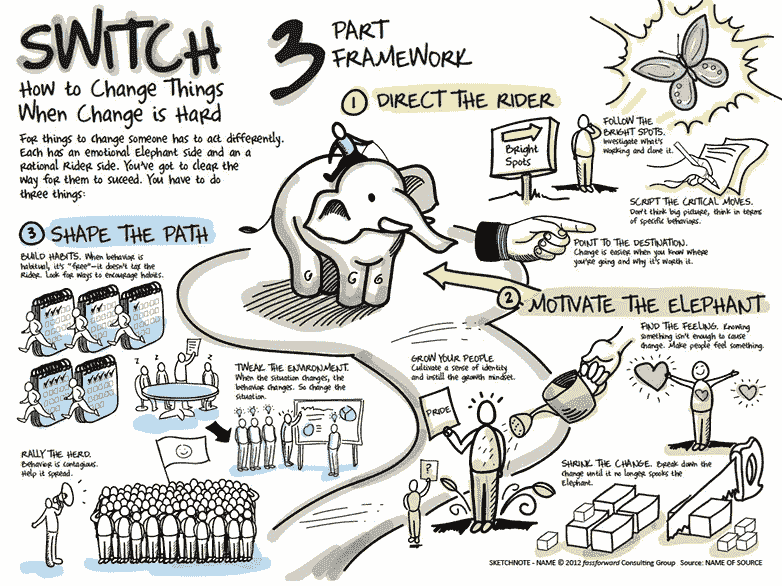 SWITCH
How to Change Things
When Change is Hard
For things to change someone has to act differently.
Each has an emotional Elephant side and an a
rational Rider side. You've got to clear the
way for them to suceed. You have to do
three things:
3 PART
FRAMEWORK
1 DIRECT THE RIDER
Bright
Spots
FOLLOW THE
BRIGHT SPOTS.
Investigate what's
working and clone it.
SCRIPT THE CRITICAL MOVES.
Don't think big picture, think in terms
of specific behaviors.
POINT TO THE DESTINATION.
Change is easier when you know where
you're going and why it's worth it.
2 MOTIVATE THE ELEPHANT
FIND THE FEELING. Knowing
something isn't enough to cause
change. Make people feel something.
GROW YOUR PEOPLE
Cultivate a sense of identity
and instill the growth mindset.
PRIDE
?
SHRINK THE CHANGE. Break down the
change until it no longer spooks the
Elephant.
3 SHAPE THE PATH
BUILD HABITS. When behavior is
habitual, it's "free"—it doesn't tax the
Rider. Look for ways to encourage habits.
z
z
TWEAK THE ENVIRONMENT.
When the situation changes, the
behavior changes. So change the
situation.
RALLY THE HERD.
Behavior is contagious.
Help it spread.
SKETCHNOTE - NAME © 2012 fassforward Consulting Group Source: NAME OF SOURCE